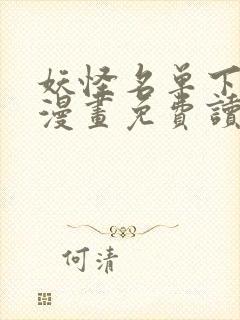 妖怪名单下
漫畫免費讀
何清